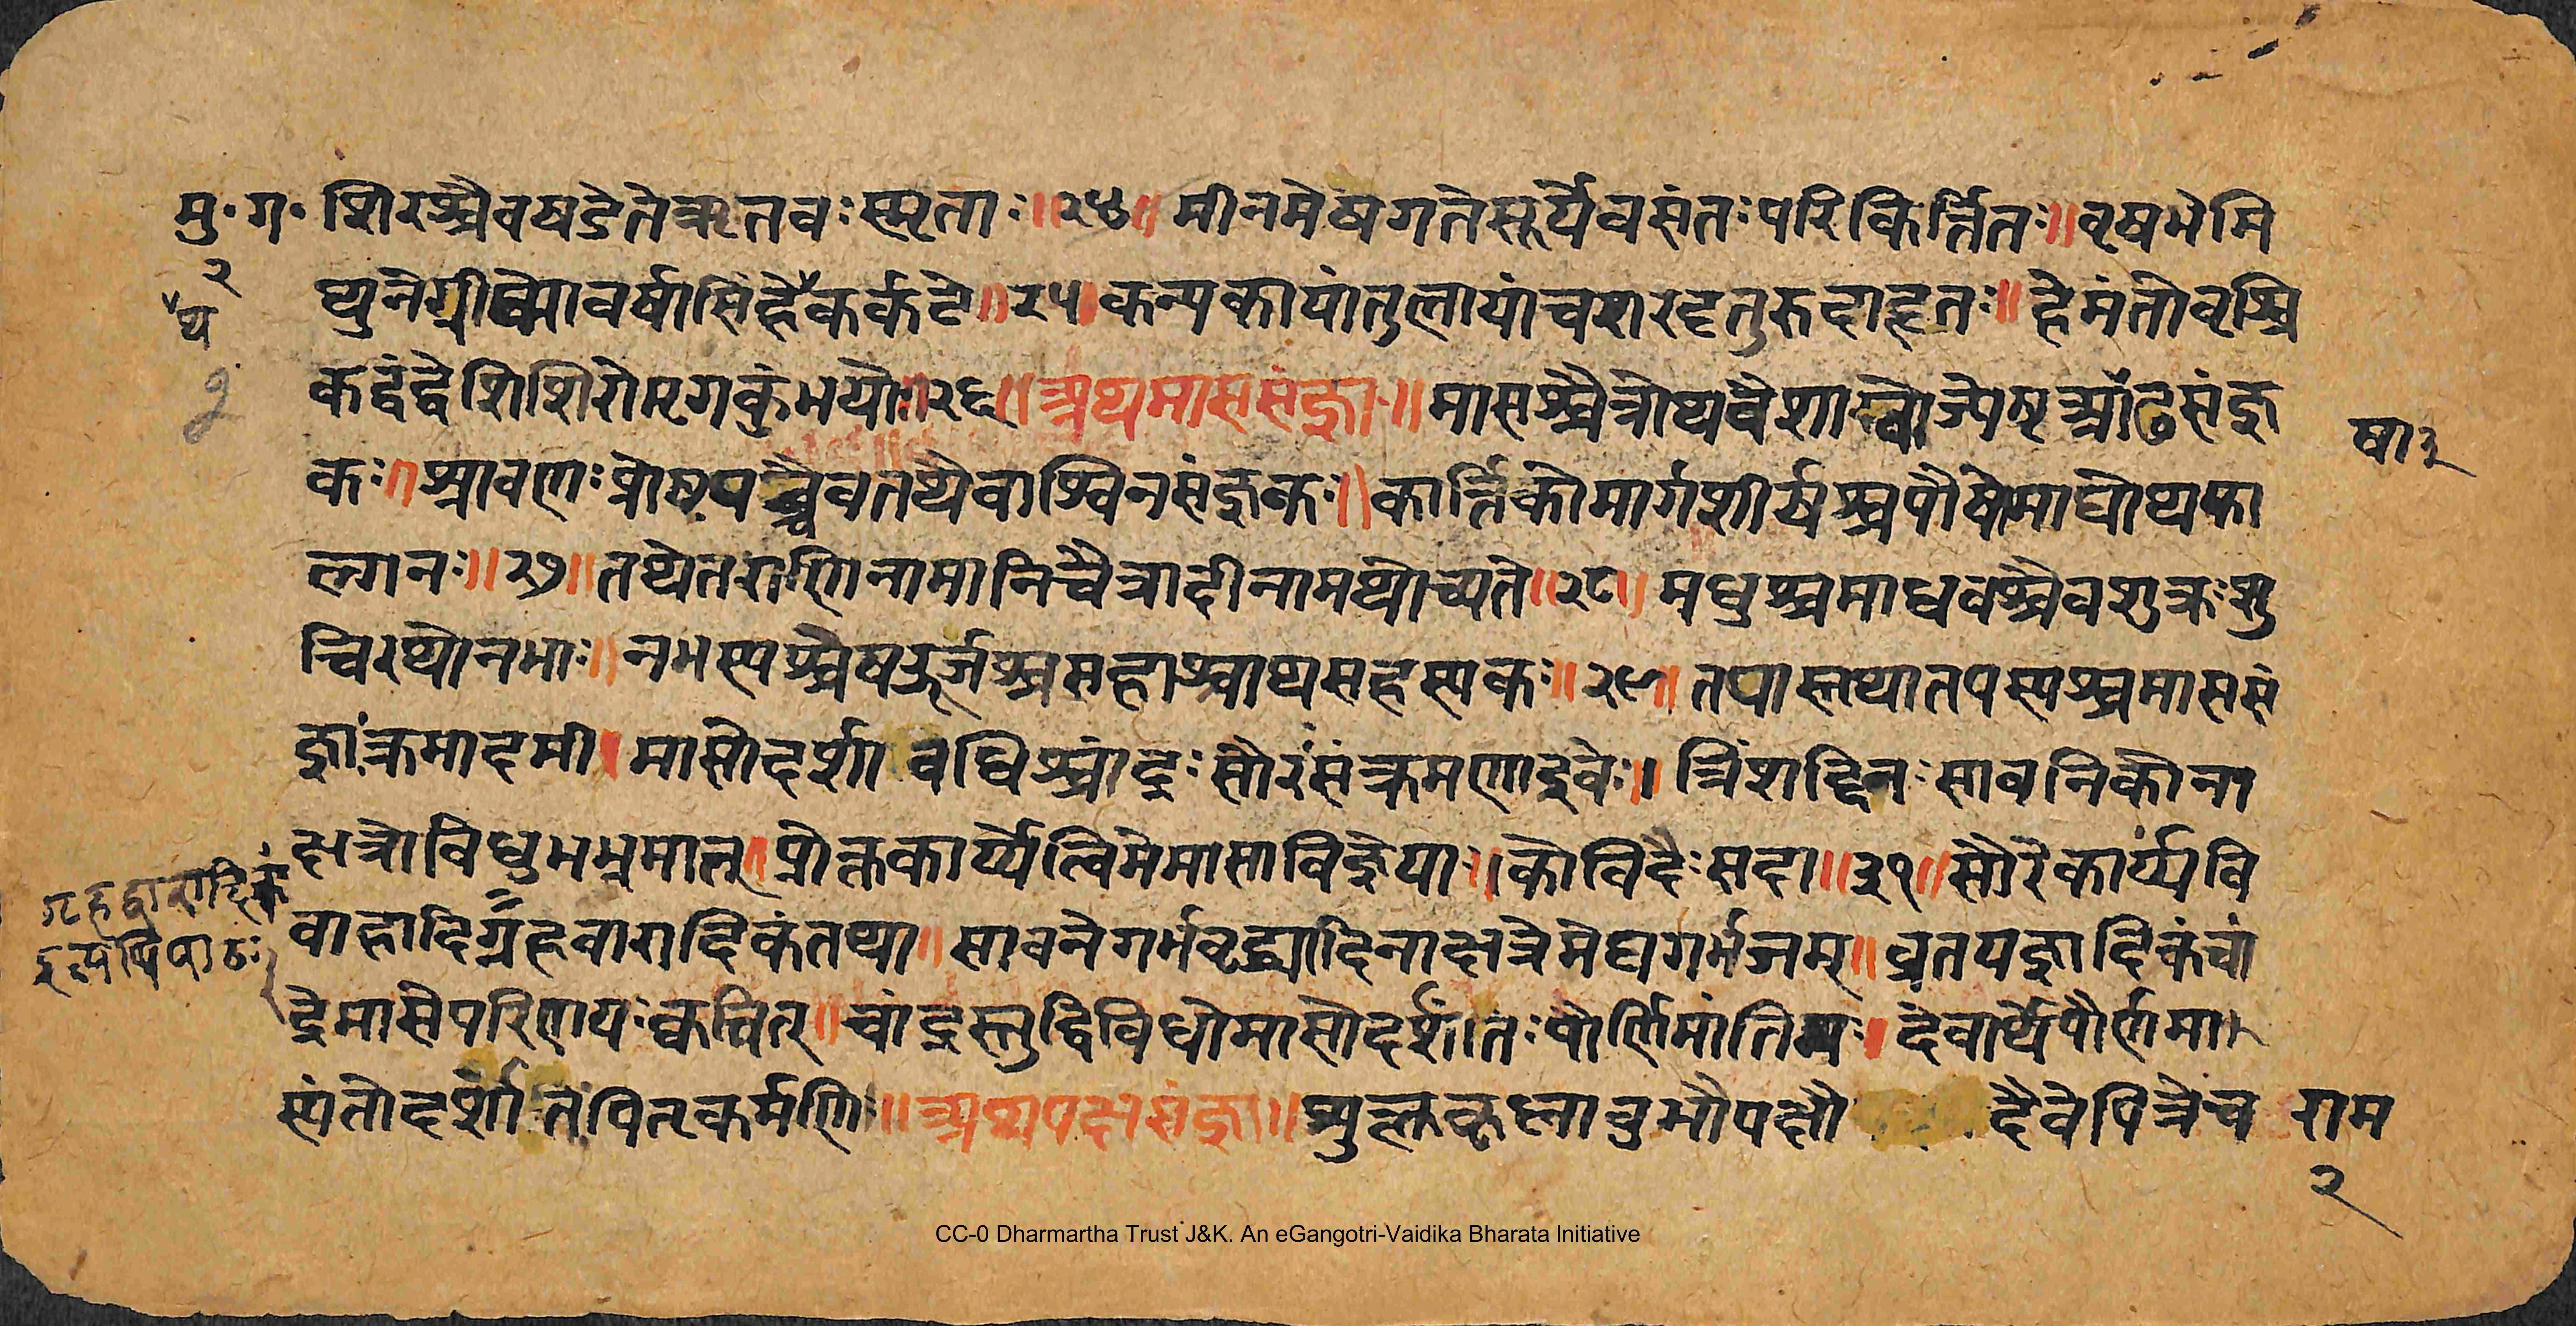 मु॰ग॰ शिरश्चैवषडेतेऋतवःस्मृताः॥२४॥ मीनमेषगतेसूर्येवसंतःपरिकिर्त्तितः॥वृषभेमि
२
थ
थुनेग्रीष्मोवर्षासिंहेकर्कटे॥२५॥कन्यकायांतुलायांचशरदृतुरुदाहृतः॥हेमंतोवृश्चि
2
कद्वंद्वेशिशिरोमृगकुंभयोः॥२६॥अथमाससंज्ञाः॥मासश्चैत्रोथवैशाखोज्येष्टआढसंज्ञ
षा३
कः॥श्रावणःप्रोष्टपच्चैवतथैवाश्विनसंज्ञकः॥कार्त्तिकोमार्गशीर्षश्चपौषोमाघोथफा
ल्गुनः॥२७॥तथेतराणिनामानिचैत्रादीनामथोच्यते॥२८॥मधुश्चमाधवश्चैवशुक्रःशु
चिरथोनभाः॥नभस्यश्चेषऊर्जश्चसहाश्चाथसहस्यकः॥२९॥तपास्तथातपस्यश्चमाससं
ज्ञांःक्रमादमी॥मासोदर्शावधिश्चांद्रःसौरःसंक्रमणाद्रवेः॥त्रिंशद्दिनःसावनिकोना
क्षत्रोविधुभभ्रमात्॥प्रोक्तकार्य्येत्विमेमासाविज्ञेयाः॥कोविदैःसदा॥३१॥सौरेकार्य्यंवि
गृहद्वारादिकं
वाहादिग्रहवारादिकंतथा॥सावनेगर्भवृद्ध्यादिनाक्षत्रेमेघगर्भजम्॥व्रतयज्ञादिकंचां
इत्यपिपाठः
द्रेमासेपरिणयःक्वचित्॥चांद्रस्तुद्विविधोमासोदर्शांतःपौर्णिमांतिमः॥देवार्थेपौर्णमा
स्यंतोदर्शांतंपितृकर्मणि॥अथपक्षसंज्ञा॥शुक्लकृष्णावुभौपक्षौ दैवेपित्रेच राम
२
CC-0 Dharmartha Trust J&K. An eGangotri-Vaidika Bharata Initiative